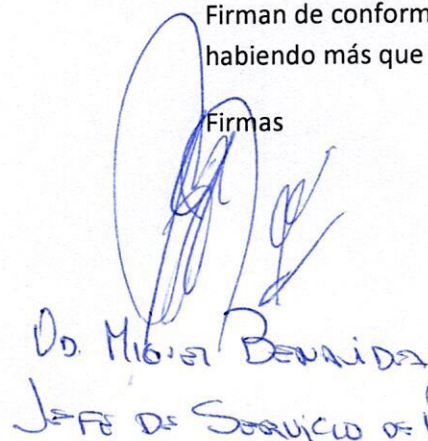 Firman de conform
habiendo más que
Firmas
DD. MIGUEL
JEFE DE SERVICIO DE